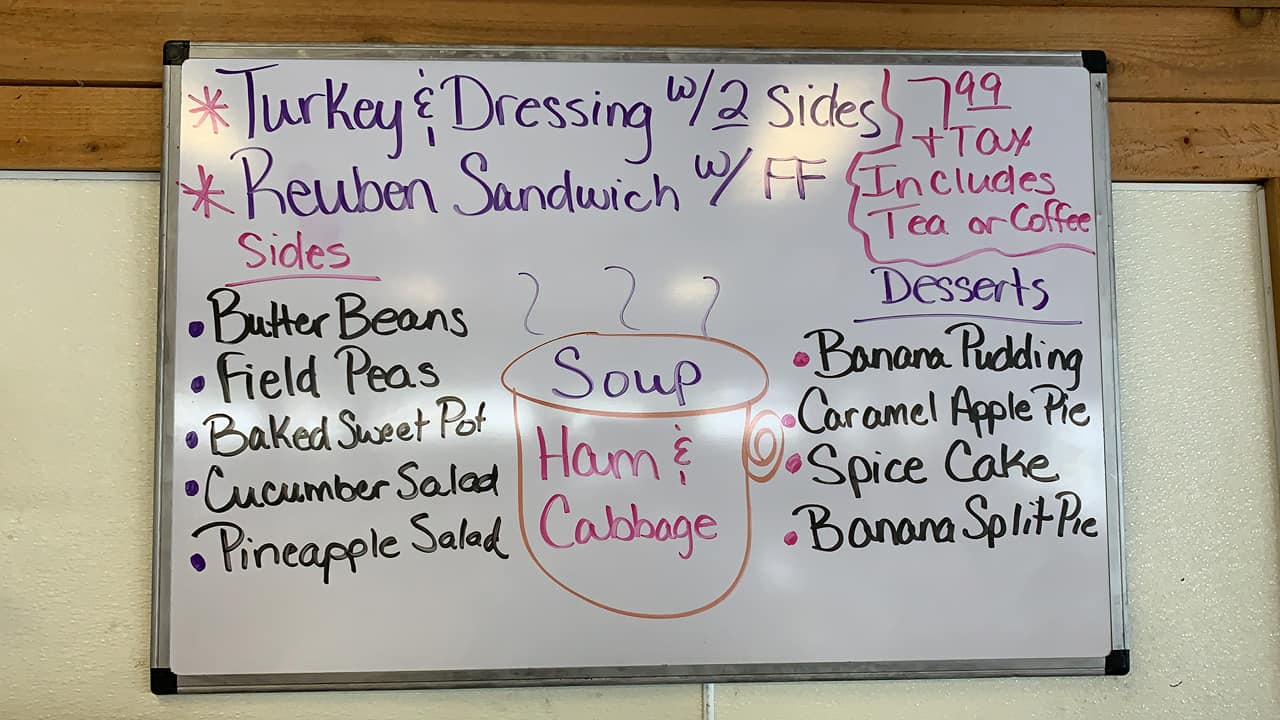 * Turkey & Dressing w/2 Sides
* Reuben Sandwich w/ FF
7.99
+ Tax
Includes
Tea or Coffee
Sides
• Butter Beans
• Field Peas
• Baked Sweet Pot
• Cucumber Salad
• Pineapple Salad
Soup
Ham &
Cabbage
Desserts
• Banana Pudding
• Caramel Apple Pie
• Spice Cake
• Banana Split Pie